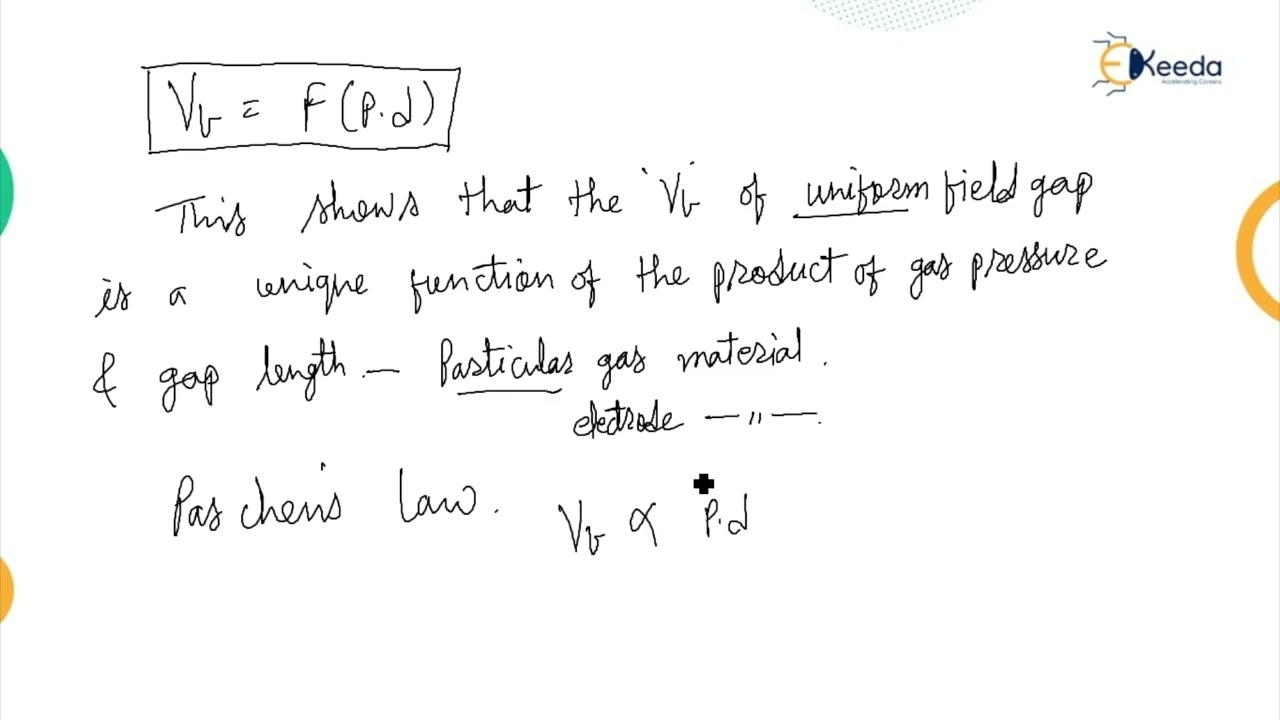 EKeeda
Accelerating Careers
V_b = F(P.d)
This shows that the 'V_b' of uniform field gap
is a unique function of the product of gas pressure
& gap length. — Particular gas material.
electrode — " —.
Paschen's Law. V_b ∝ P.d